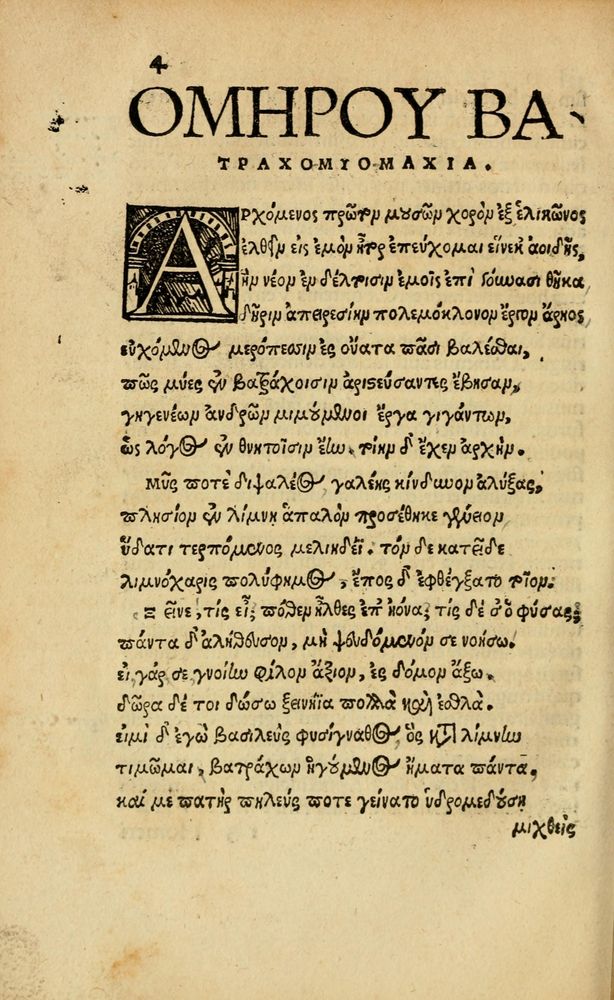 4
ΟΜΗΡΟΥ ΒΑ-
ΤΡΑΧΟΜΥΟΜΑΧΙΑ.
ΑΡχόμενος πρῶτον μουσῶν χορὸν ἐξ ἑλικῶνος
ἐλθεῖν εἰς ἐμὸν ἦτρ ἐπεύχομαι εἵνεκ ἀοιδῆς,
ἣν νέον ἐν δέλτοισιν ἐμοῖς ἐπὶ γούνασι θῆκα
δῆριν ἀπειρεσίην πολεμόκλονον ἔργον ἄρηος
εὐχόμενος μερόπεσσιν ἐς οὔατα πᾶσι βαλέσθαι,
πῶς μύες ἐν βατράχοισιν ἀριστεύσαντες ἔβησαν,
γηγενέων ἀνδρῶν μιμούμενοι ἔργα γιγάντων,
ὡς λόγος ἐν θνητοῖσιν ἔην. τίην δ' ἔχεν ἀρχήν.
Μῦς ποτὲ διψαλέος, γαλέης κίνδυνον ἀλύξας,
πλησίον ἐν λίμνῃ ἁπαλὸν προσέθηκε γένειον
ὕδατι τερπόμενος μελιηδέϊ. τὸν δὲ κατεῖδε
λιμνόχαρις πολύφημος, ἔπος δ' ἐφθέγξατο τῖον.
Ξεῖνε, τίς εἶ; πόθεν ἦλθες ἐπ' ἠόνα; τίς δέ σ' ὁ φύσας;
πάντα δ' ἀλήθευσον, μὴ ψευδόμενόν σε νοήσω.
εἰ γάρ σε γνοίην φίλον ἄξιον, ἐς δόμον ἄξω.
δῶρα δέ τοι δώσω ξεινήϊα πολλὰ καὶ ἐσθλά.
εἰμὶ δ' ἐγὼ βασιλεὺς φυσίγναθος, ὃς κατὰ λίμνην
τιμῶμαι, βατράχων ἡγούμενος ἤματα πάντα.
καί με πατὴρ πηλεύς ποτε γείνατο ὑδρομεδούσῃ
μιχθεὶς